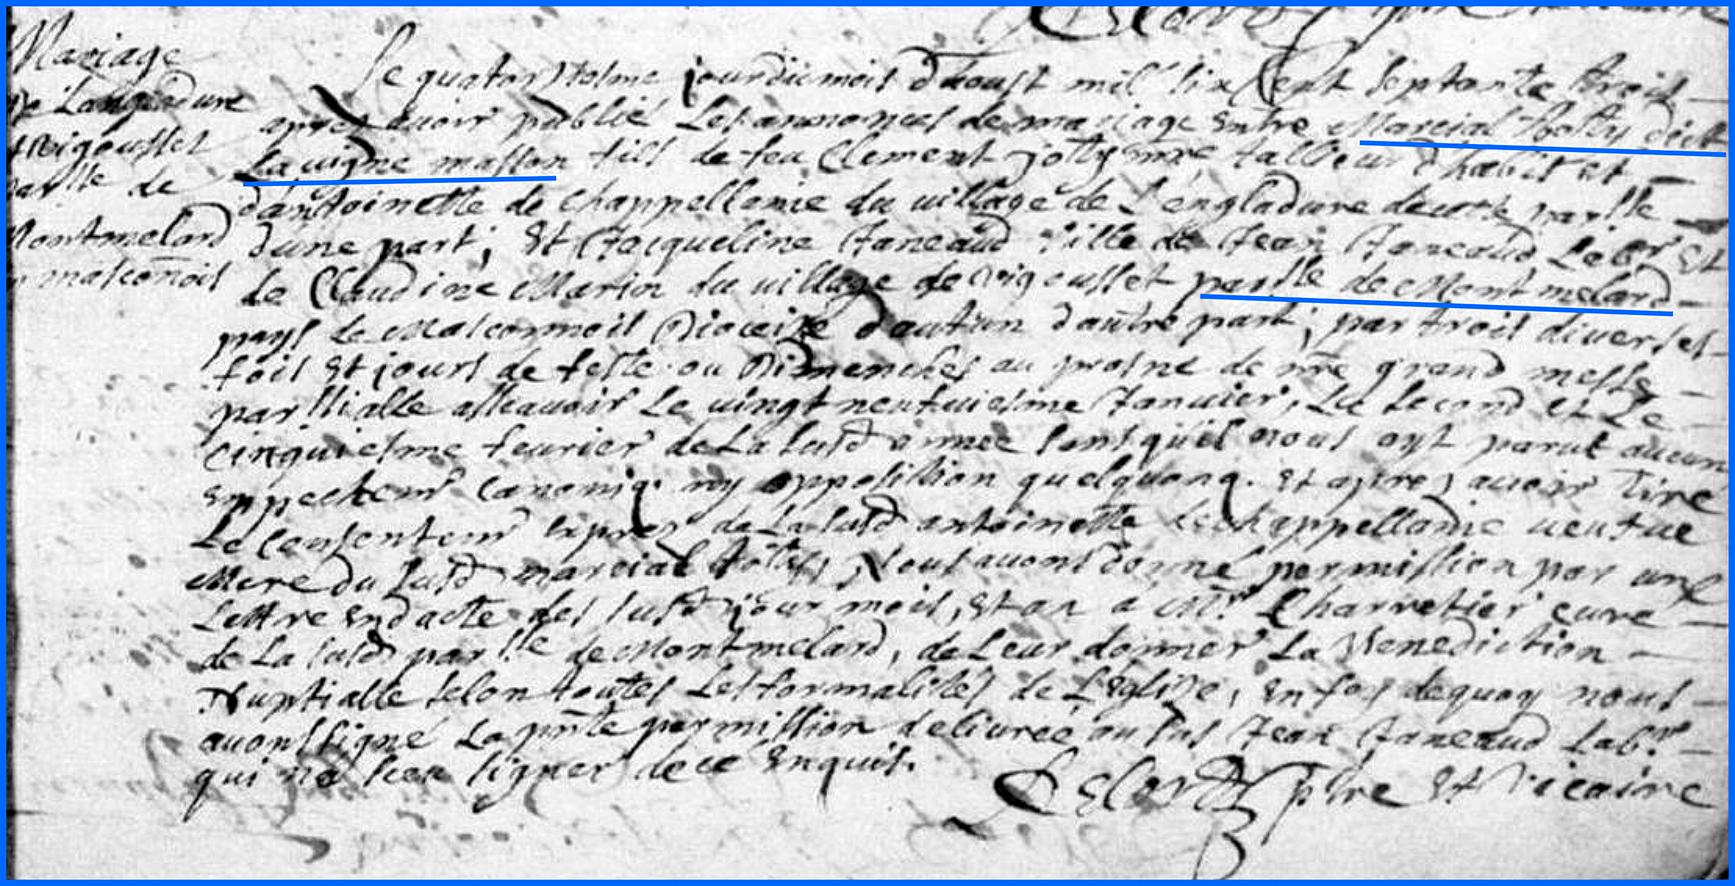 Mariage
de Langladure
et Vigousset
parsse de
Montmelard
en masconnois
Le quatorsiesme jour du mois d'aoust mil six cent septante trois
apres avoir publié Les annonces de mariage Entre Marcial Jolty dict
La vigne masson fils de feu Clement jolty mre tallieur d'habit et
d'antoinette de Chappellanie du village de L'engladure de cette parsse
d'une part; Et Jacqueline Janeaud fille de Jean Janeaud Labr Et
de Claudine Marin du village de Vigousset parsse de Montmelard
pays de Masconnois Diocese d'autun d'autre part; par trois diverses
fois Et jours de feste ou Dimenches au prosne de nre grand messe
parssialle assavoir Le vingt neufviesme Janvier, Le second et Le
cinquiesme fevrier de La susd annee sans qu'il nous ayt parut aucun
Empechemt Canoniq. ny opposition quelquonq. Et apres avoir Tiré
Le Consentemt expres de La susd antoinette de Chappellanie veufve
Mere du susd marcial Nous avons donné permission par une
Lettre En dacte des susd jour mois, Et an a Mr Charretier curé
de La susd parsse de Montmelard, de Leur donner La Benediction
Nuptialle selon toutes Les formalités de L'Eglise, En foy de quoy nous
avons signé La pnte permission delivrée au sus Jean Janeaud Labr
qui n'a sceu signer de ce Enquis.
ptre Et Vicaire